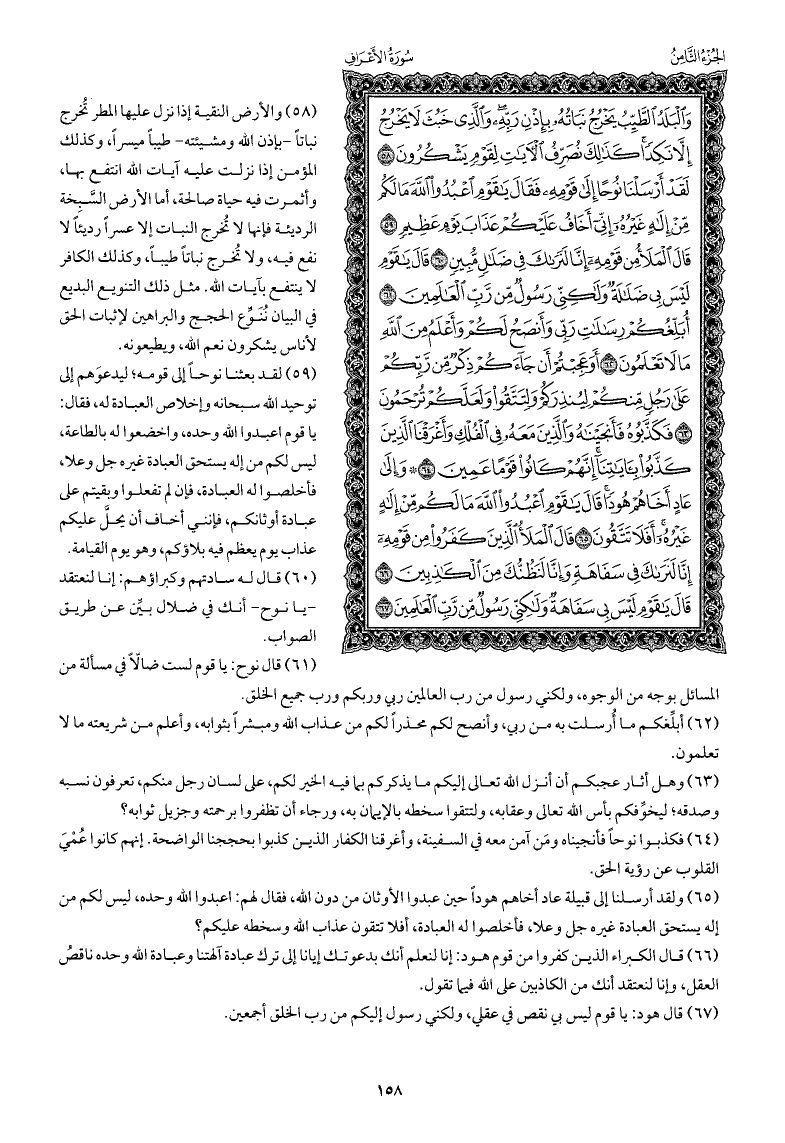 الجُزْءُ الثَّامِنُ
سُورَةُ الأَعْرَافِ
وَٱلْبَلَدُ ٱلطَّيِّبُ يَخْرُجُ نَبَاتُهُۥ بِإِذْنِ رَبِّهِۦۖ وَٱلَّذِى خَبُثَ لَا يَخْرُجُ
إِلَّا نَكِدًاۚ كَذَٰلِكَ نُصَرِّفُ ٱلْـَٔايَٰتِ لِقَوْمٍ يَشْكُرُونَ ٥٨
لَقَدْ أَرْسَلْنَا نُوحًا إِلَىٰ قَوْمِهِۦ فَقَالَ يَٰقَوْمِ ٱعْبُدُوا۟ ٱللَّهَ مَا لَكُم
مِّنْ إِلَٰهٍ غَيْرُهُۥٓ إِنِّىٓ أَخَافُ عَلَيْكُمْ عَذَابَ يَوْمٍ عَظِيمٍ ٥٩
قَالَ ٱلْمَلَأُ مِن قَوْمِهِۦٓ إِنَّا لَنَرَىٰكَ فِى ضَلَٰلٍ مُّبِينٍ ٦٠ قَالَ يَٰقَوْمِ
لَيْسَ بِى ضَلَٰلَةٌ وَلَٰكِنِّى رَسُولٌ مِّن رَّبِّ ٱلْعَٰلَمِينَ ٦١
أُبَلِّغُكُمْ رِسَٰلَٰتِ رَبِّى وَأَنصَحُ لَكُمْ وَأَعْلَمُ مِنَ ٱللَّهِ
مَا لَا تَعْلَمُونَ ٦٢ أَوَعَجِبْتُمْ أَن جَآءَكُمْ ذِكْرٌ مِّن رَّبِّكُمْ
عَلَىٰ رَجُلٍ مِّنكُمْ لِيُنذِرَكُمْ وَلِتَتَّقُوا۟ وَلَعَلَّكُمْ تُرْحَمُونَ
٦٣ فَكَذَّبُوهُ فَأَنجَيْنَٰهُ وَٱلَّذِينَ مَعَهُۥ فِى ٱلْفُلْكِ وَأَغْرَقْنَا ٱلَّذِينَ
كَذَّبُوا۟ بِـَٔايَٰتِنَآۚ إِنَّهُمْ كَانُوا۟ قَوْمًا عَمِينَ ٦٤ ۞ وَإِلَىٰ
عَادٍ أَخَاهُمْ هُودًاۗ قَالَ يَٰقَوْمِ ٱعْبُدُوا۟ ٱللَّهَ مَا لَكُم مِّنْ إِلَٰهٍ
غَيْرُهُۥٓۚ أَفَلَا تَتَّقُونَ ٦٥ قَالَ ٱلْمَلَأُ ٱلَّذِينَ كَفَرُوا۟ مِن قَوْمِهِۦٓ
إِنَّا لَنَرَىٰكَ فِى سَفَاهَةٍ وَإِنَّا لَنَظُنُّكَ مِنَ ٱلْكَٰذِبِينَ ٦٦
قَالَ يَٰقَوْمِ لَيْسَ بِى سَفَاهَةٌ وَلَٰكِنِّى رَسُولٌ مِّن رَّبِّ ٱلْعَٰلَمِينَ ٦٧
(٥٨) والأرض النقية إذا نزل عليها المطر تُخرج
نباتاً -بإذن الله ومشيئته- طيباً ميسراً، وكذلك
المؤمن إذا نزلت عليه آيات الله انتفع بها،
وأثمرت فيه حياة صالحة، أما الأرض السَّبِخة
الرديئة فإنها لا تُخرج النبات إلا عسراً رديئاً لا
نفع فيه، ولا تُخرج نباتاً طيباً، وكذلك الكافر
لا ينتفع بآيات الله. مثل ذلك التنويع البديع
في البيان نُنَوِّع الحجج والبراهين لإثبات الحق
لأناس يشكرون نعم الله، ويطيعونه.
(٥٩) لقد بعثنا نوحاً إلى قومه؛ ليدعوَهم إلى
توحيد الله سبحانه وإخلاص العبادة له، فقال:
يا قوم اعبدوا الله وحده، واخضعوا له بالطاعة،
ليس لكم من إله يستحق العبادة غيره جل وعلا،
فأخلصوا له العبادة، فإن لم تفعلوا وبقيتم على
عبادة أوثانكم، فإنني أخاف أن يحلَّ عليكم
عذاب يوم يعظم فيه بلاؤكم، وهو يوم القيامة.
(٦٠) قال له سادتهم وكبراؤهم: إنا لنعتقد
-يا نوح- أنك في ضلال بيِّن عن طريق
الصواب.
(٦١) قال نوح: يا قوم لست ضالّاً في مسألة من
المسائل بوجه من الوجوه، ولكني رسول من رب العالمين ربي وربكم ورب جميع الخلق.
(٦٢) أبلِّغكم ما أُرسلت به من ربي، وأنصح لكم محذراً لكم من عذاب الله ومبشراً بثوابه، وأعلم من شريعته ما لا
تعلمون.
(٦٣) وهل أثار عجبكم أن أنزل الله تعالى إليكم ما يذكركم بما فيه الخير لكم، على لسان رجل منكم، تعرفون نسبه
وصدقه؛ ليخوِّفكم بأس الله تعالى وعقابه، ولتتقوا سخطه بالإيمان به، ورجاء أن تظفروا برحمته وجزيل ثوابه؟
(٦٤) فكذبوا نوحاً فأنجيناه ومَن آمن معه في السفينة، وأغرقنا الكفار الذين كذبوا بحججنا الواضحة. إنهم كانوا عُمْيَ
القلوب عن رؤية الحق.
(٦٥) ولقد أرسلنا إلى قبيلة عاد أخاهم هوداً حين عبدوا الأوثان من دون الله، فقال لهم: اعبدوا الله وحده، ليس لكم من
إله يستحق العبادة غيره جل وعلا، فأخلصوا له العبادة، أفلا تتقون عذاب الله وسخطه عليكم؟
(٦٦) قال الكبراء الذين كفروا من قوم هود: إنا لنعلم أنك بدعوتك إيانا إلى ترك عبادة آلهتنا وعبادة الله وحده ناقصُ
العقل، وإنا لنعتقد أنك من الكاذبين على الله فيما تقول.
(٦٧) قال هود: يا قوم ليس بي نقص في عقلي، ولكني رسول إليكم من رب الخلق أجمعين.
١٥٨